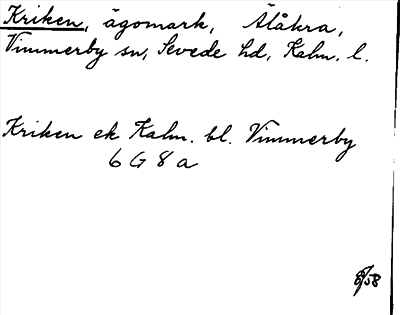 Kriken, ägomark, Älåkra,
Vimmerby sn, Sevede hd, Kalm. l.
Kriken ek Kalm. bl. Vimmerby
6 G 8 a